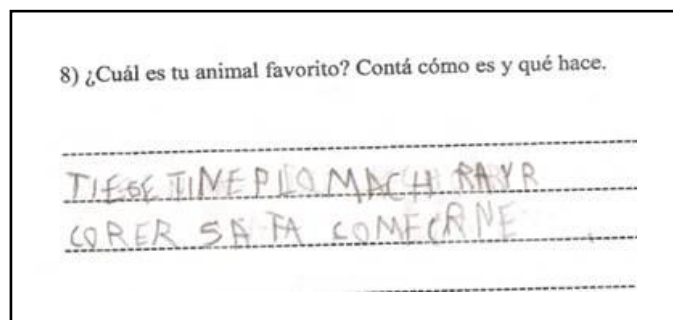 8) ¿Cuál es tu animal favorito? Contá cómo es y qué hace.
TIESE TINE PLO MACH RAYR
CORER SA TA COME CRNE